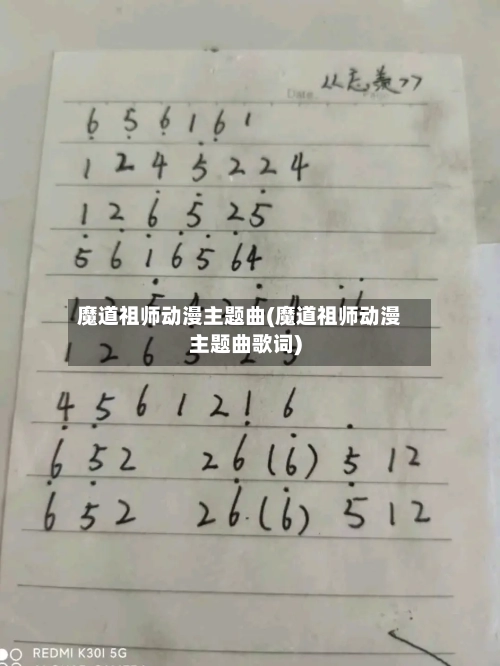 Date.
6 5 6 1 6 1
1 2 4 5 2 2 4
1 2 6 5 2 5
5 6 1 6 5 6 4
魔道祖师动漫主题曲(魔道祖师动漫
主题曲歌词)
1 2 6 5 2 5
4 5 6 1 2 1 6
6 5 2 2 6 (6) 5 1 2
6 5 2 2 6 (6) 5 1 2
REDMI K30I 5G